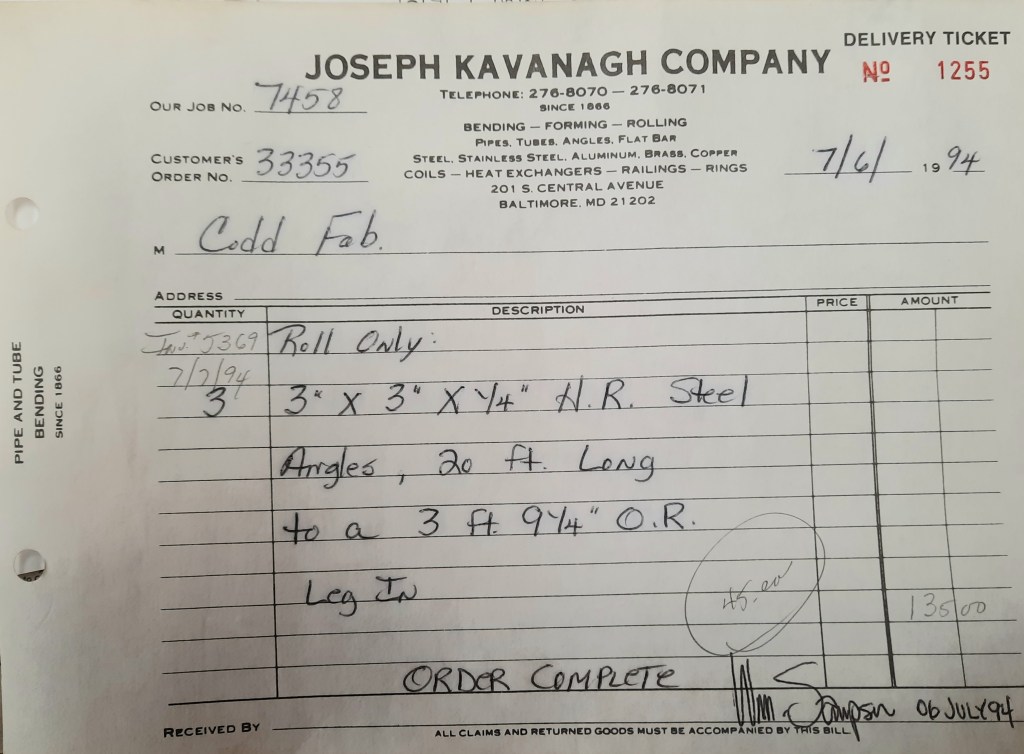 DELIVERY TICKET
JOSEPH KAVANAGH COMPANY
No 1255
TELEPHONE: 276-8070 — 276-8071
SINCE 1866
OUR JOB NO. 7458
BENDING — FORMING — ROLLING
PIPES, TUBES, ANGLES, FLAT BAR
STEEL, STAINLESS STEEL, ALUMINUM, BRASS, COPPER
COILS — HEAT EXCHANGERS — RAILINGS — RINGS
201 S. CENTRAL AVENUE
BALTIMORE, MD 21202
CUSTOMER'S
ORDER NO. 33355
7/6/ 1994
M Codd Fab.
ADDRESS
QUANTITY DESCRIPTION PRICE AMOUNT
Inv.# 5369 Roll Only:
7/7/94
3 3" X 3" X 1/4" H.R. Steel
Angles, 20 ft. Long
to a 3 ft. 9 1/4" O.R.
Leg In
45.00
135 00
ORDER COMPLETE
Wm Sampson 06 JULY 94
RECEIVED BY
ALL CLAIMS AND RETURNED GOODS MUST BE ACCOMPANIED BY THIS BILL
PIPE AND TUBE
BENDING
SINCE 1866